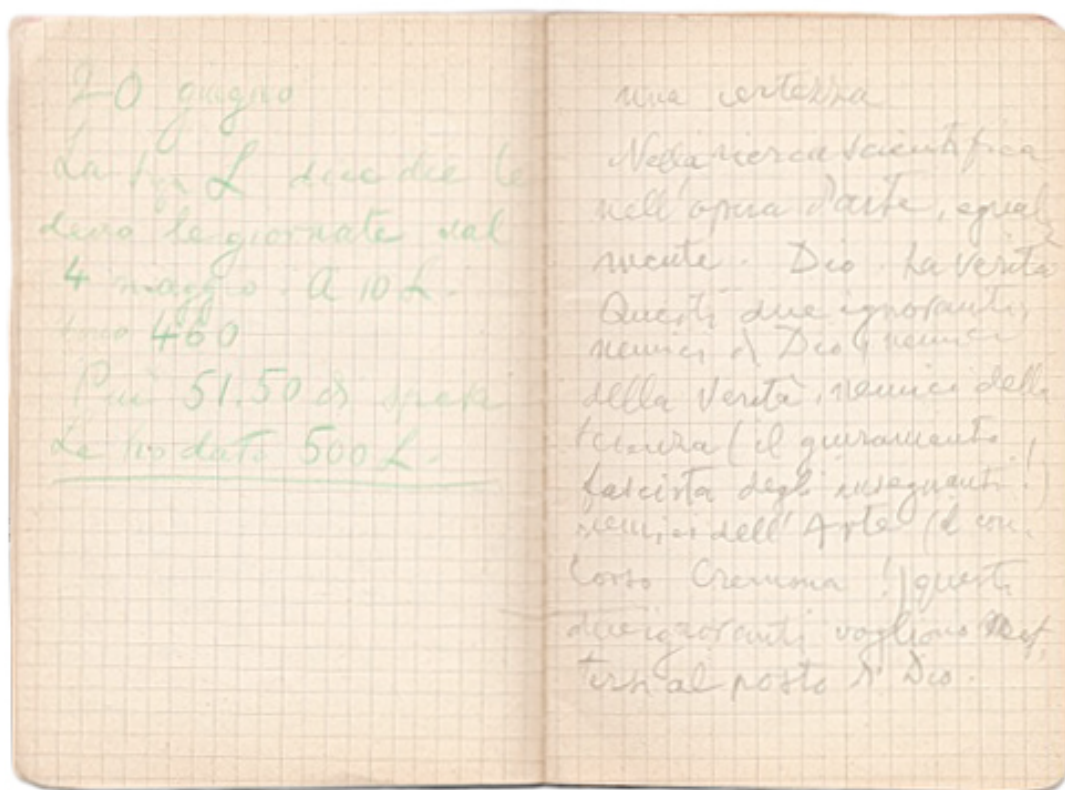 20 giugno
La Sig. L dice che le
devo le giornate dal
4 maggio. A 10 L.
sono 460
Più 51.50 di spese
Le ho dato 500 L.
una certezza
Nella ricerca scientifica
nell'opera d'arte, egual
mente. Dio. La verità
Questi due ignoranti,
nemici di Dio, nemici
della verità, nemici della
scienza (il giuramento
fascista degli insegnanti!)
nemici dell'Arte (il con.
corso Cremona!) questi
due ignoranti vogliono met,
tersi al posto di Dio.